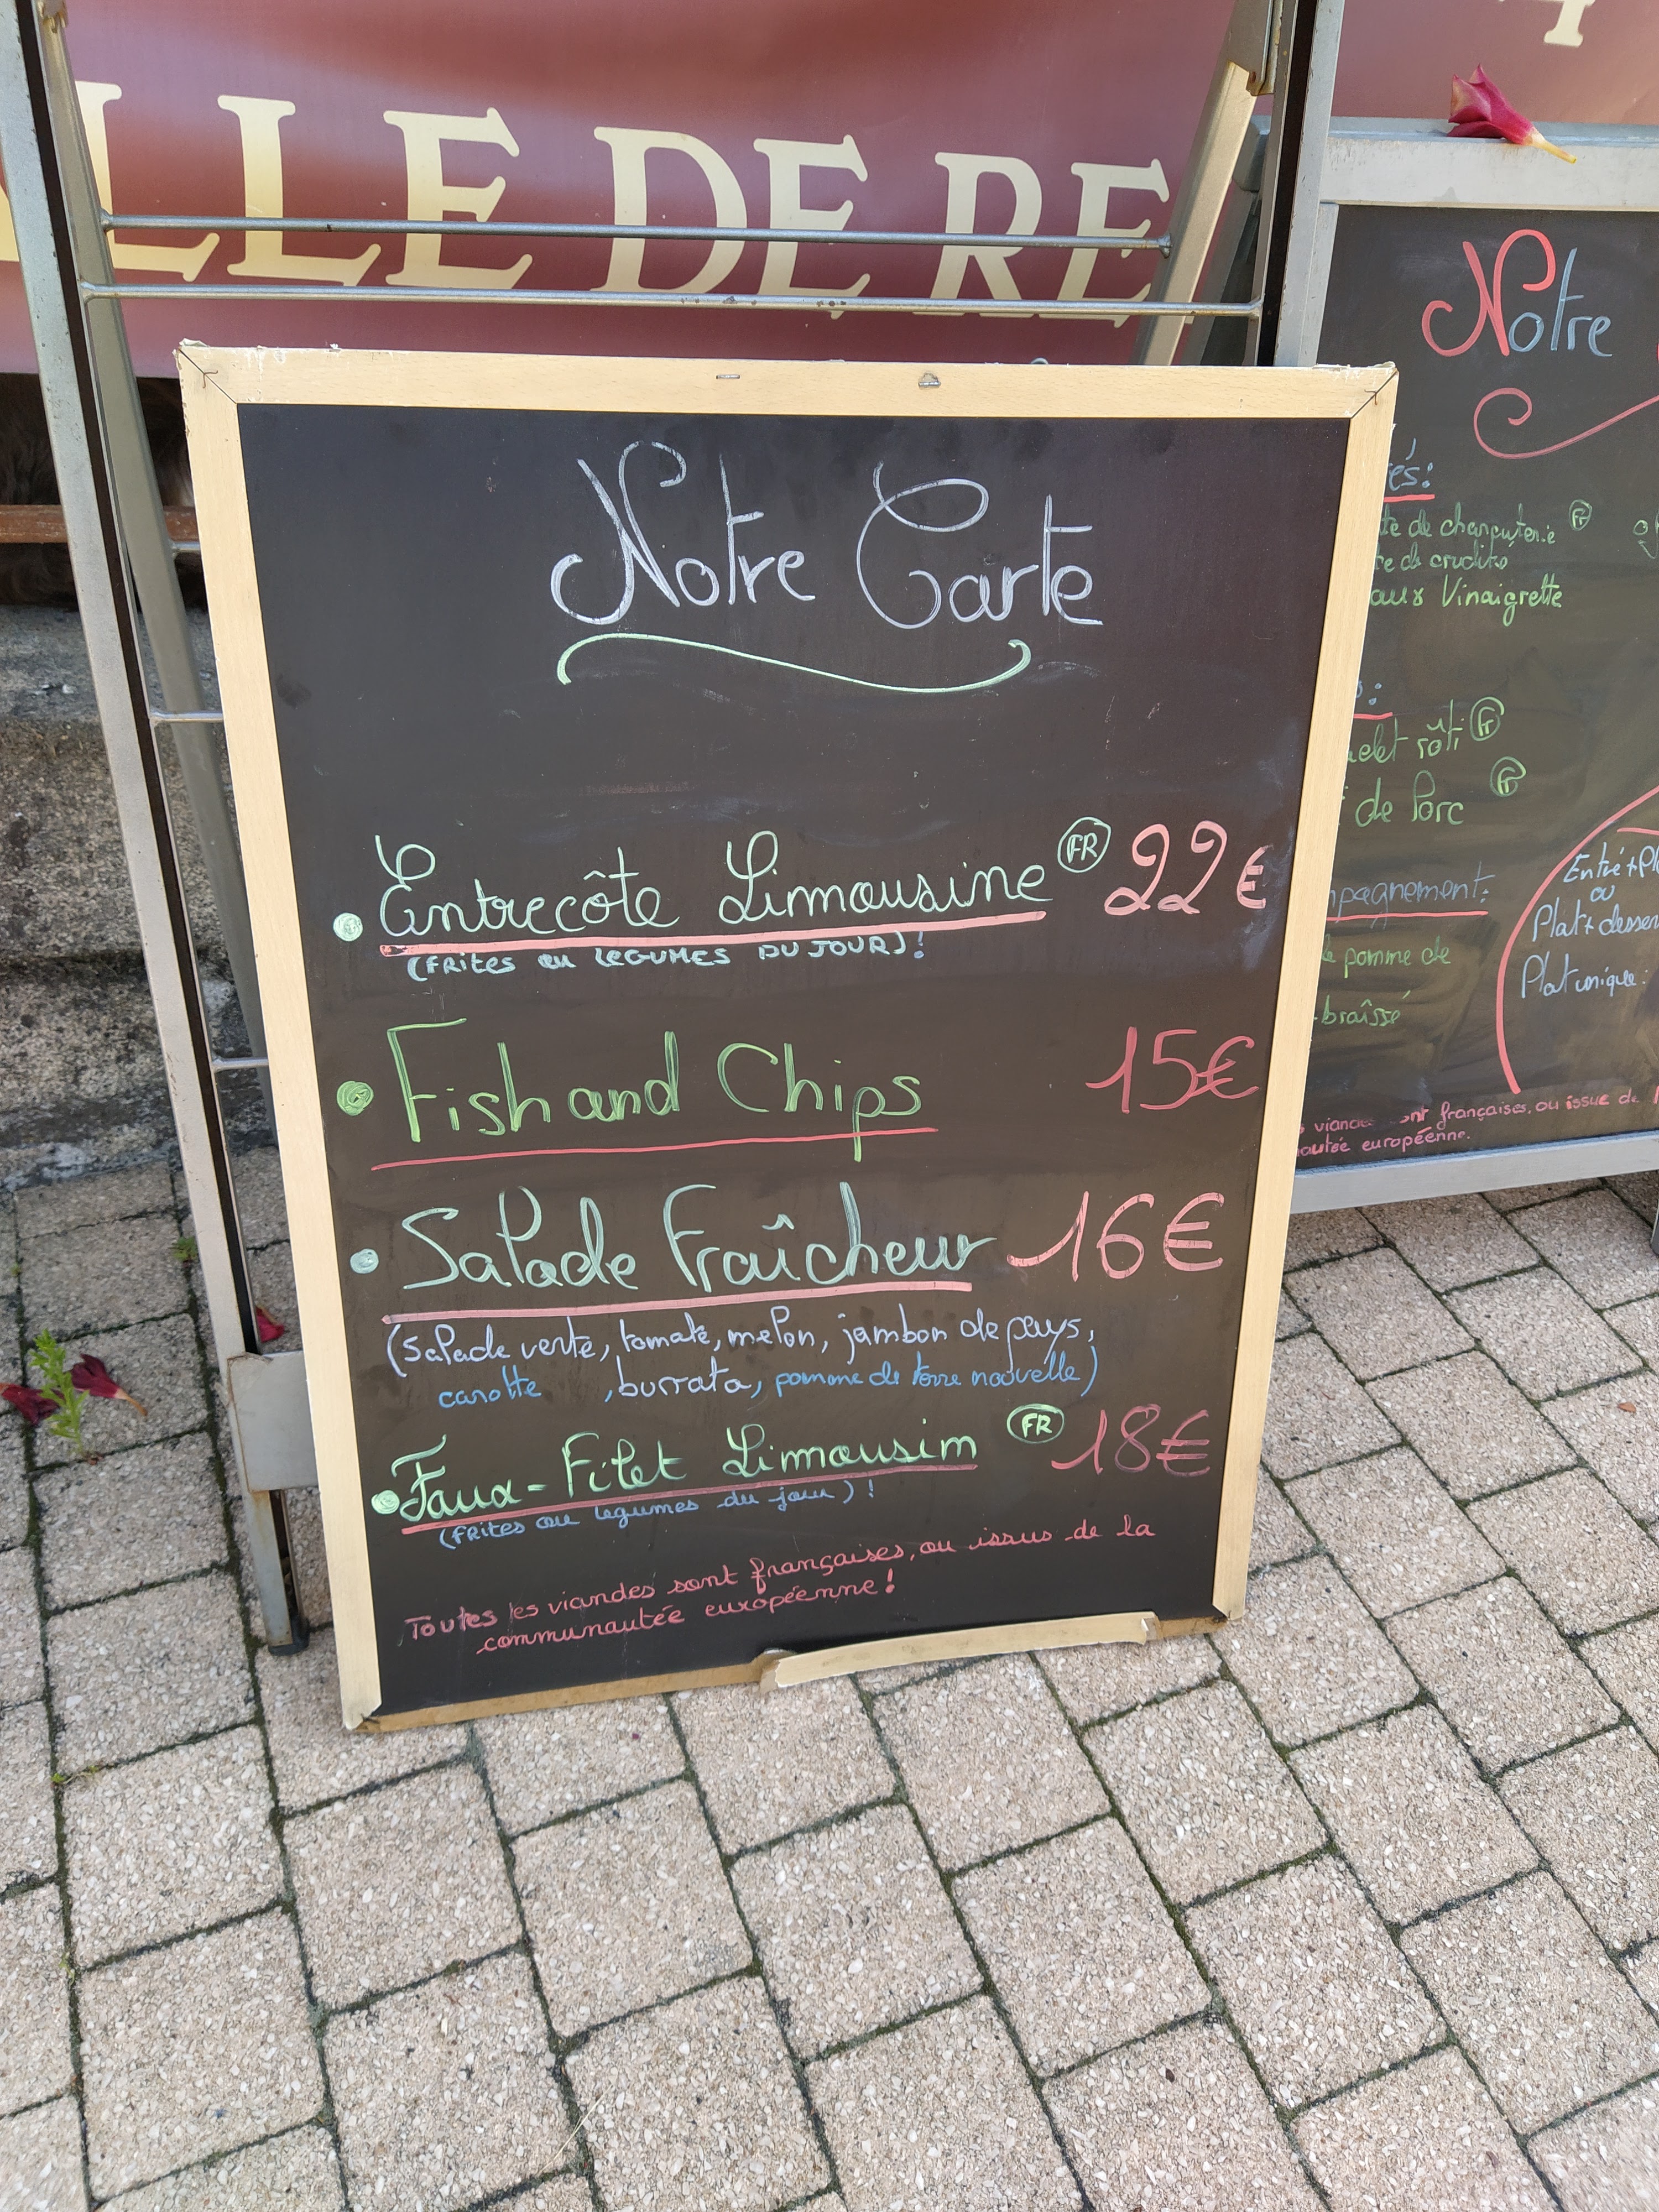 LLE DE RE
Notre Carte
• Entrecôte Limousine FR 22€
(FRites ou LEGUMES DU JOUR)!
• Fish and Chips 15€
• Salade Fraîcheur 16€
(salade verte, tomate, melon, jambon de pays,
carotte , burrata, pomme de terre nouvelle)
• Faux-Filet Limousin FR 18€
(frites ou legumes du jour)!
Toutes les viandes sont françaises, ou issus de la
communautée européenne!
Notre
és:
te de charcuterie Fr
re de crudité
aux Vinaigrette
s:
ulet rôti Fr
de Porc Fr
mpagnement:
pomme de
braîssé
Entré+Pl
ou
Plat+desser
Plat unique:
viande ont françaises, ou issue de
autée européenne.